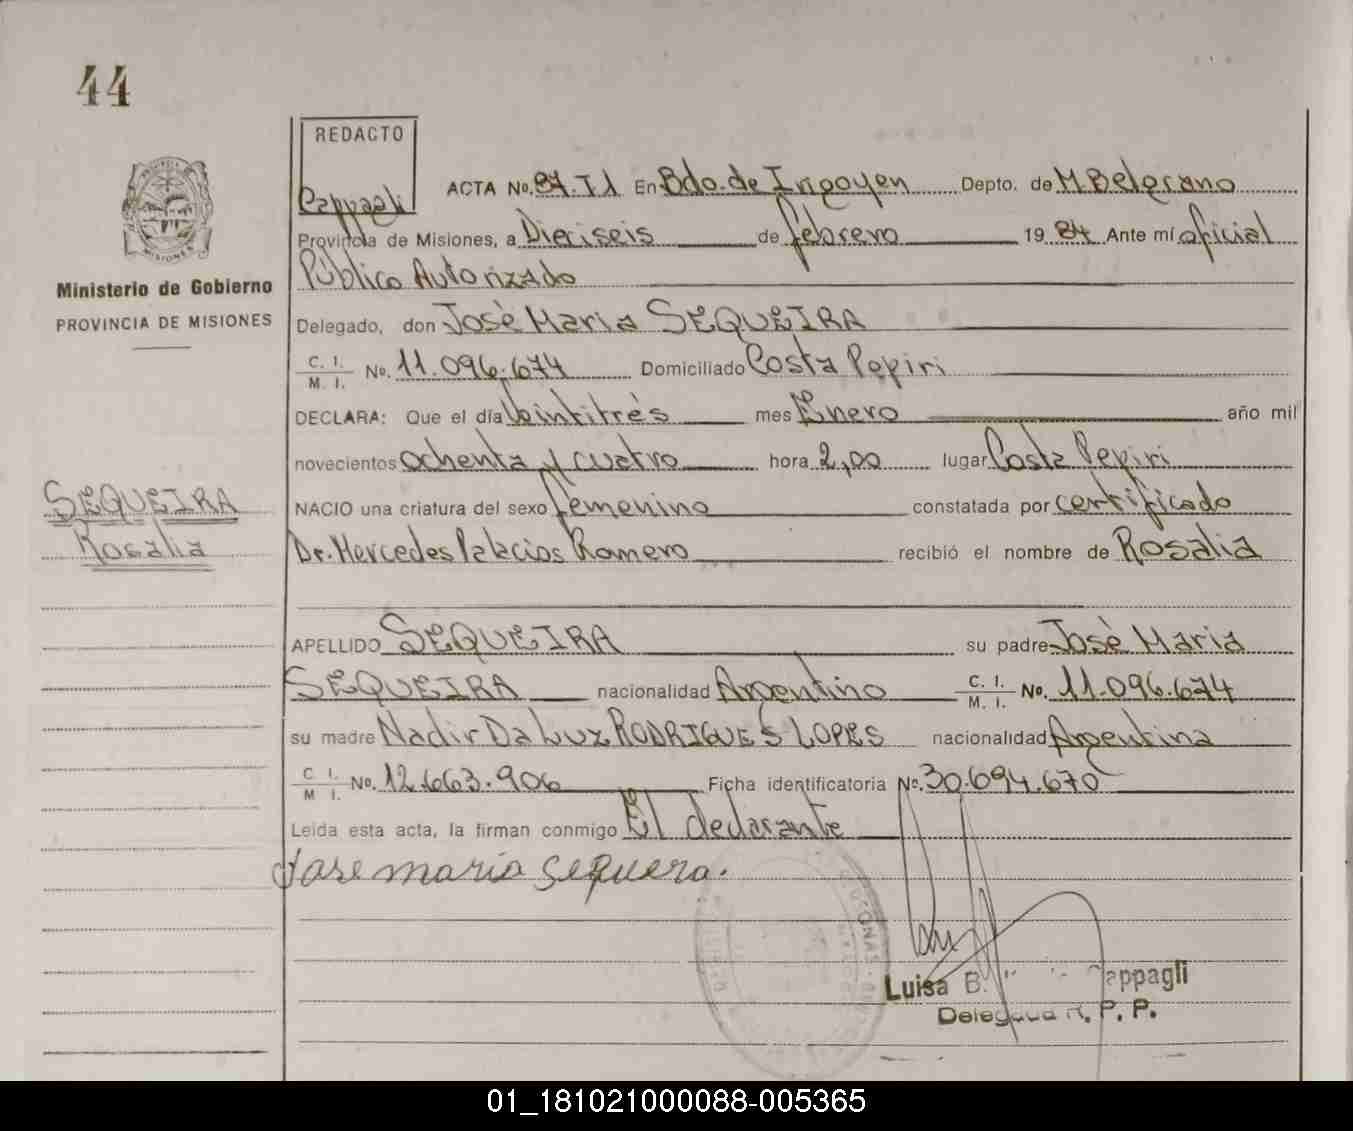 44
REDACTO
Cappagli
ACTA No. 87.TI En Bdo. de Irigoyen Depto. de M Belgrano
Provincia de Misiones, a Dieciseis de febrero 1984 Ante mí oficial
Público Autorizado
Ministerio de Gobierno
PROVINCIA DE MISIONES
Delegado, don José Maria SEQUEIRA
C. I.
M. I. No. 11.096.674 Domiciliado Costa Pepiri
DECLARA: Que el día Veintitrés mes Enero año mil
novecientos ochenta y cuatro hora 2,00 lugar Costa Pepiri
SEQUEIRA
Rosalia
NACIO una criatura del sexo femenino constatada por certificado
Dr. Mercedes Palacios Romero recibió el nombre de Rosalia
APELLIDO SEQUEIRA su padre José Maria
SEQUEIRA nacionalidad Argentino C. I. M. I. No. 11.096.674
su madre Nadir Da Luz RODRIGUES LOPES nacionalidad Argentina
C I.
M I. No. 12.663.906 Ficha identificatoria No. 30.694.670
Leida esta acta, la firman conmigo El declarante
Jose maria sequera.
Luisa B. Cappagli
Delegada R. P. P.
01_181021000088-005365